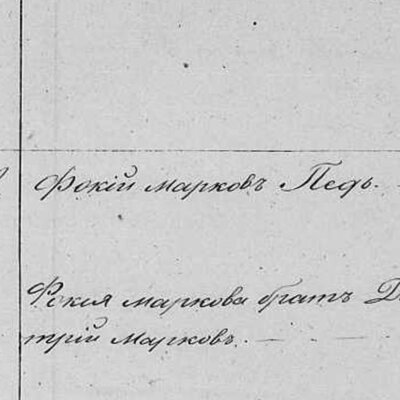 Фокій Марковъ Педь.
Фокія Маркова братъ
трій Марковъ.